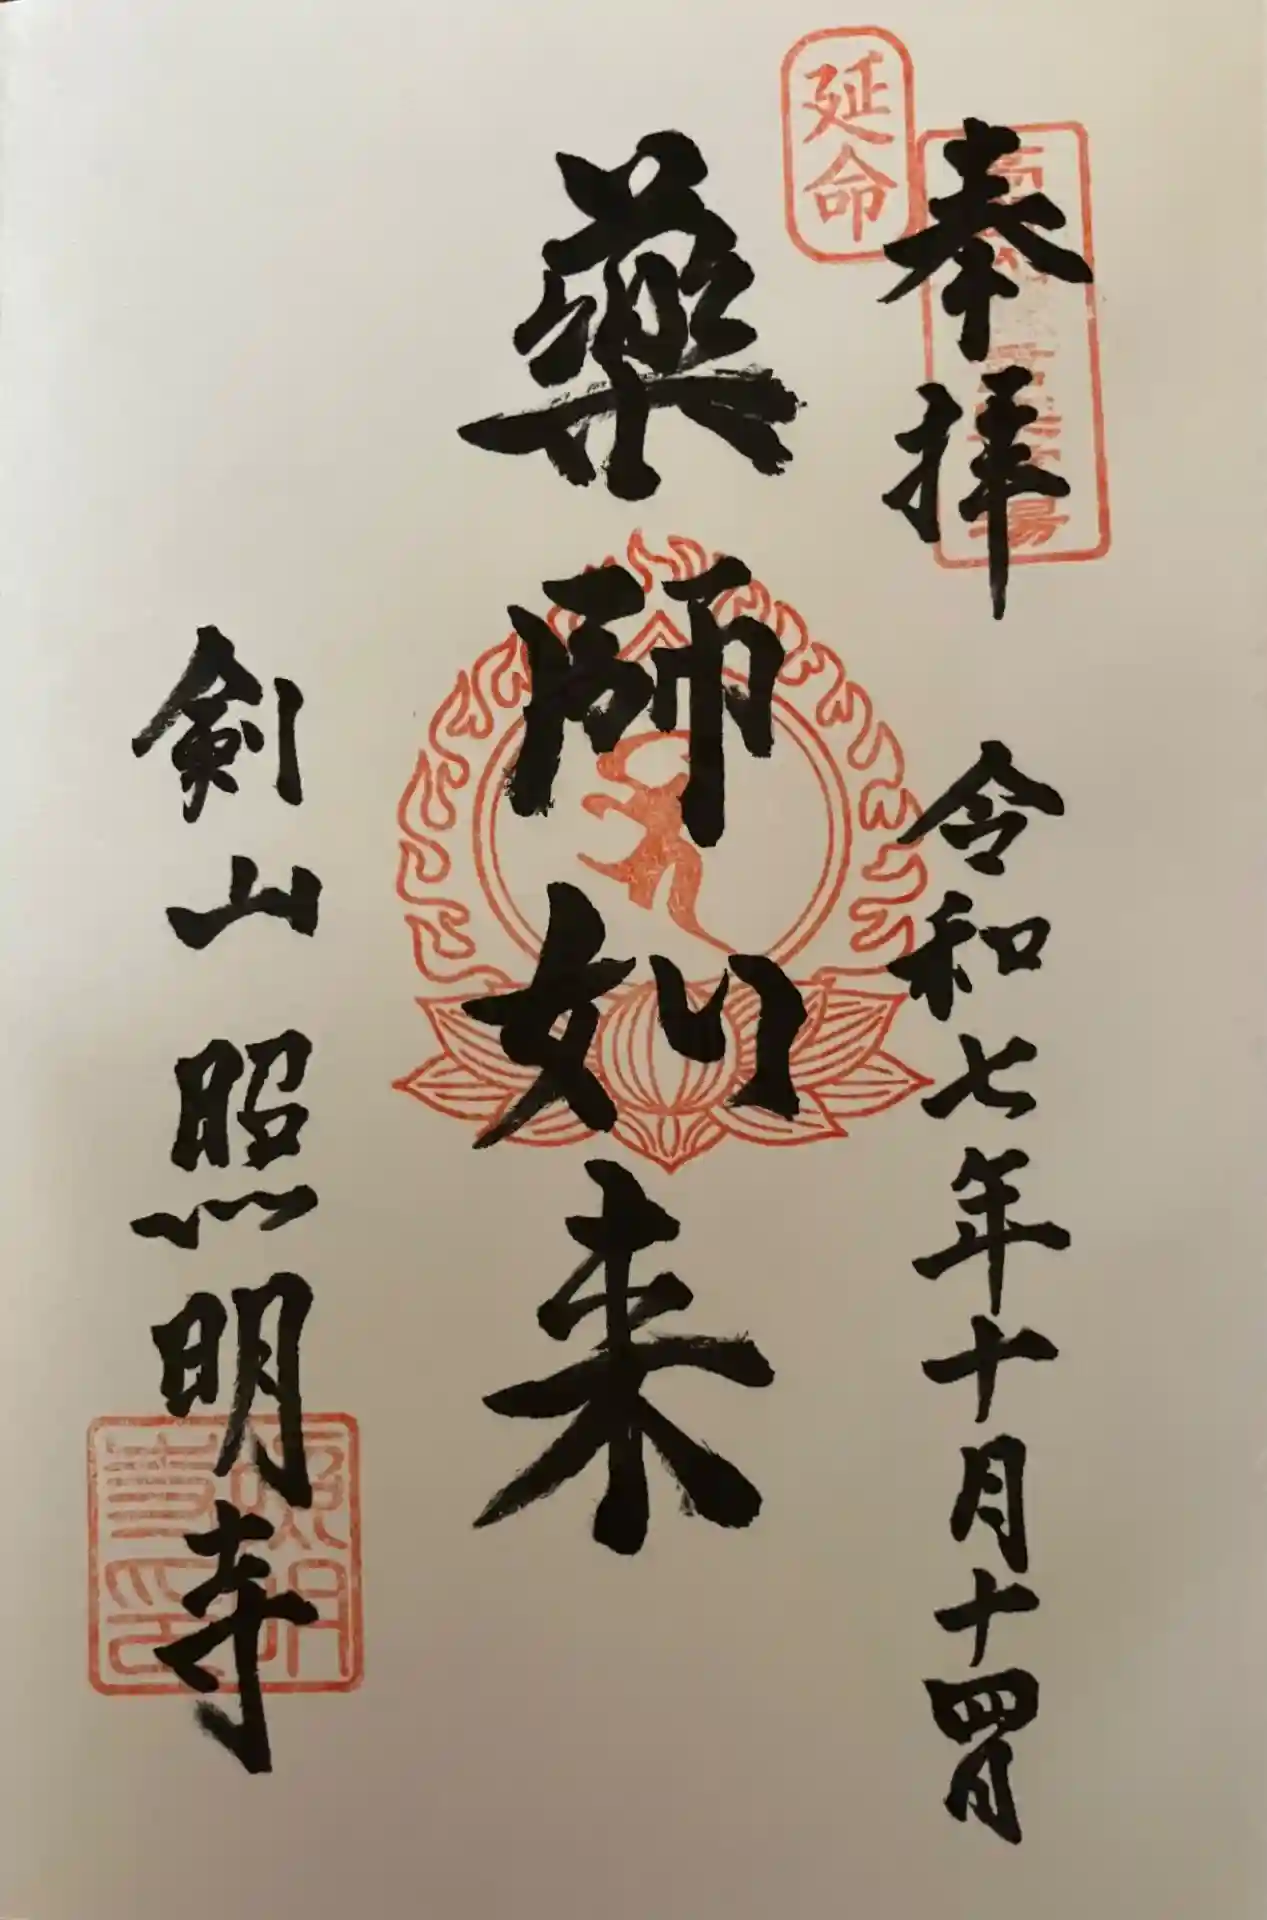 奉拝
令和七年十月十四日
延命
薬師如来
剣山 照明寺
照明
寺印